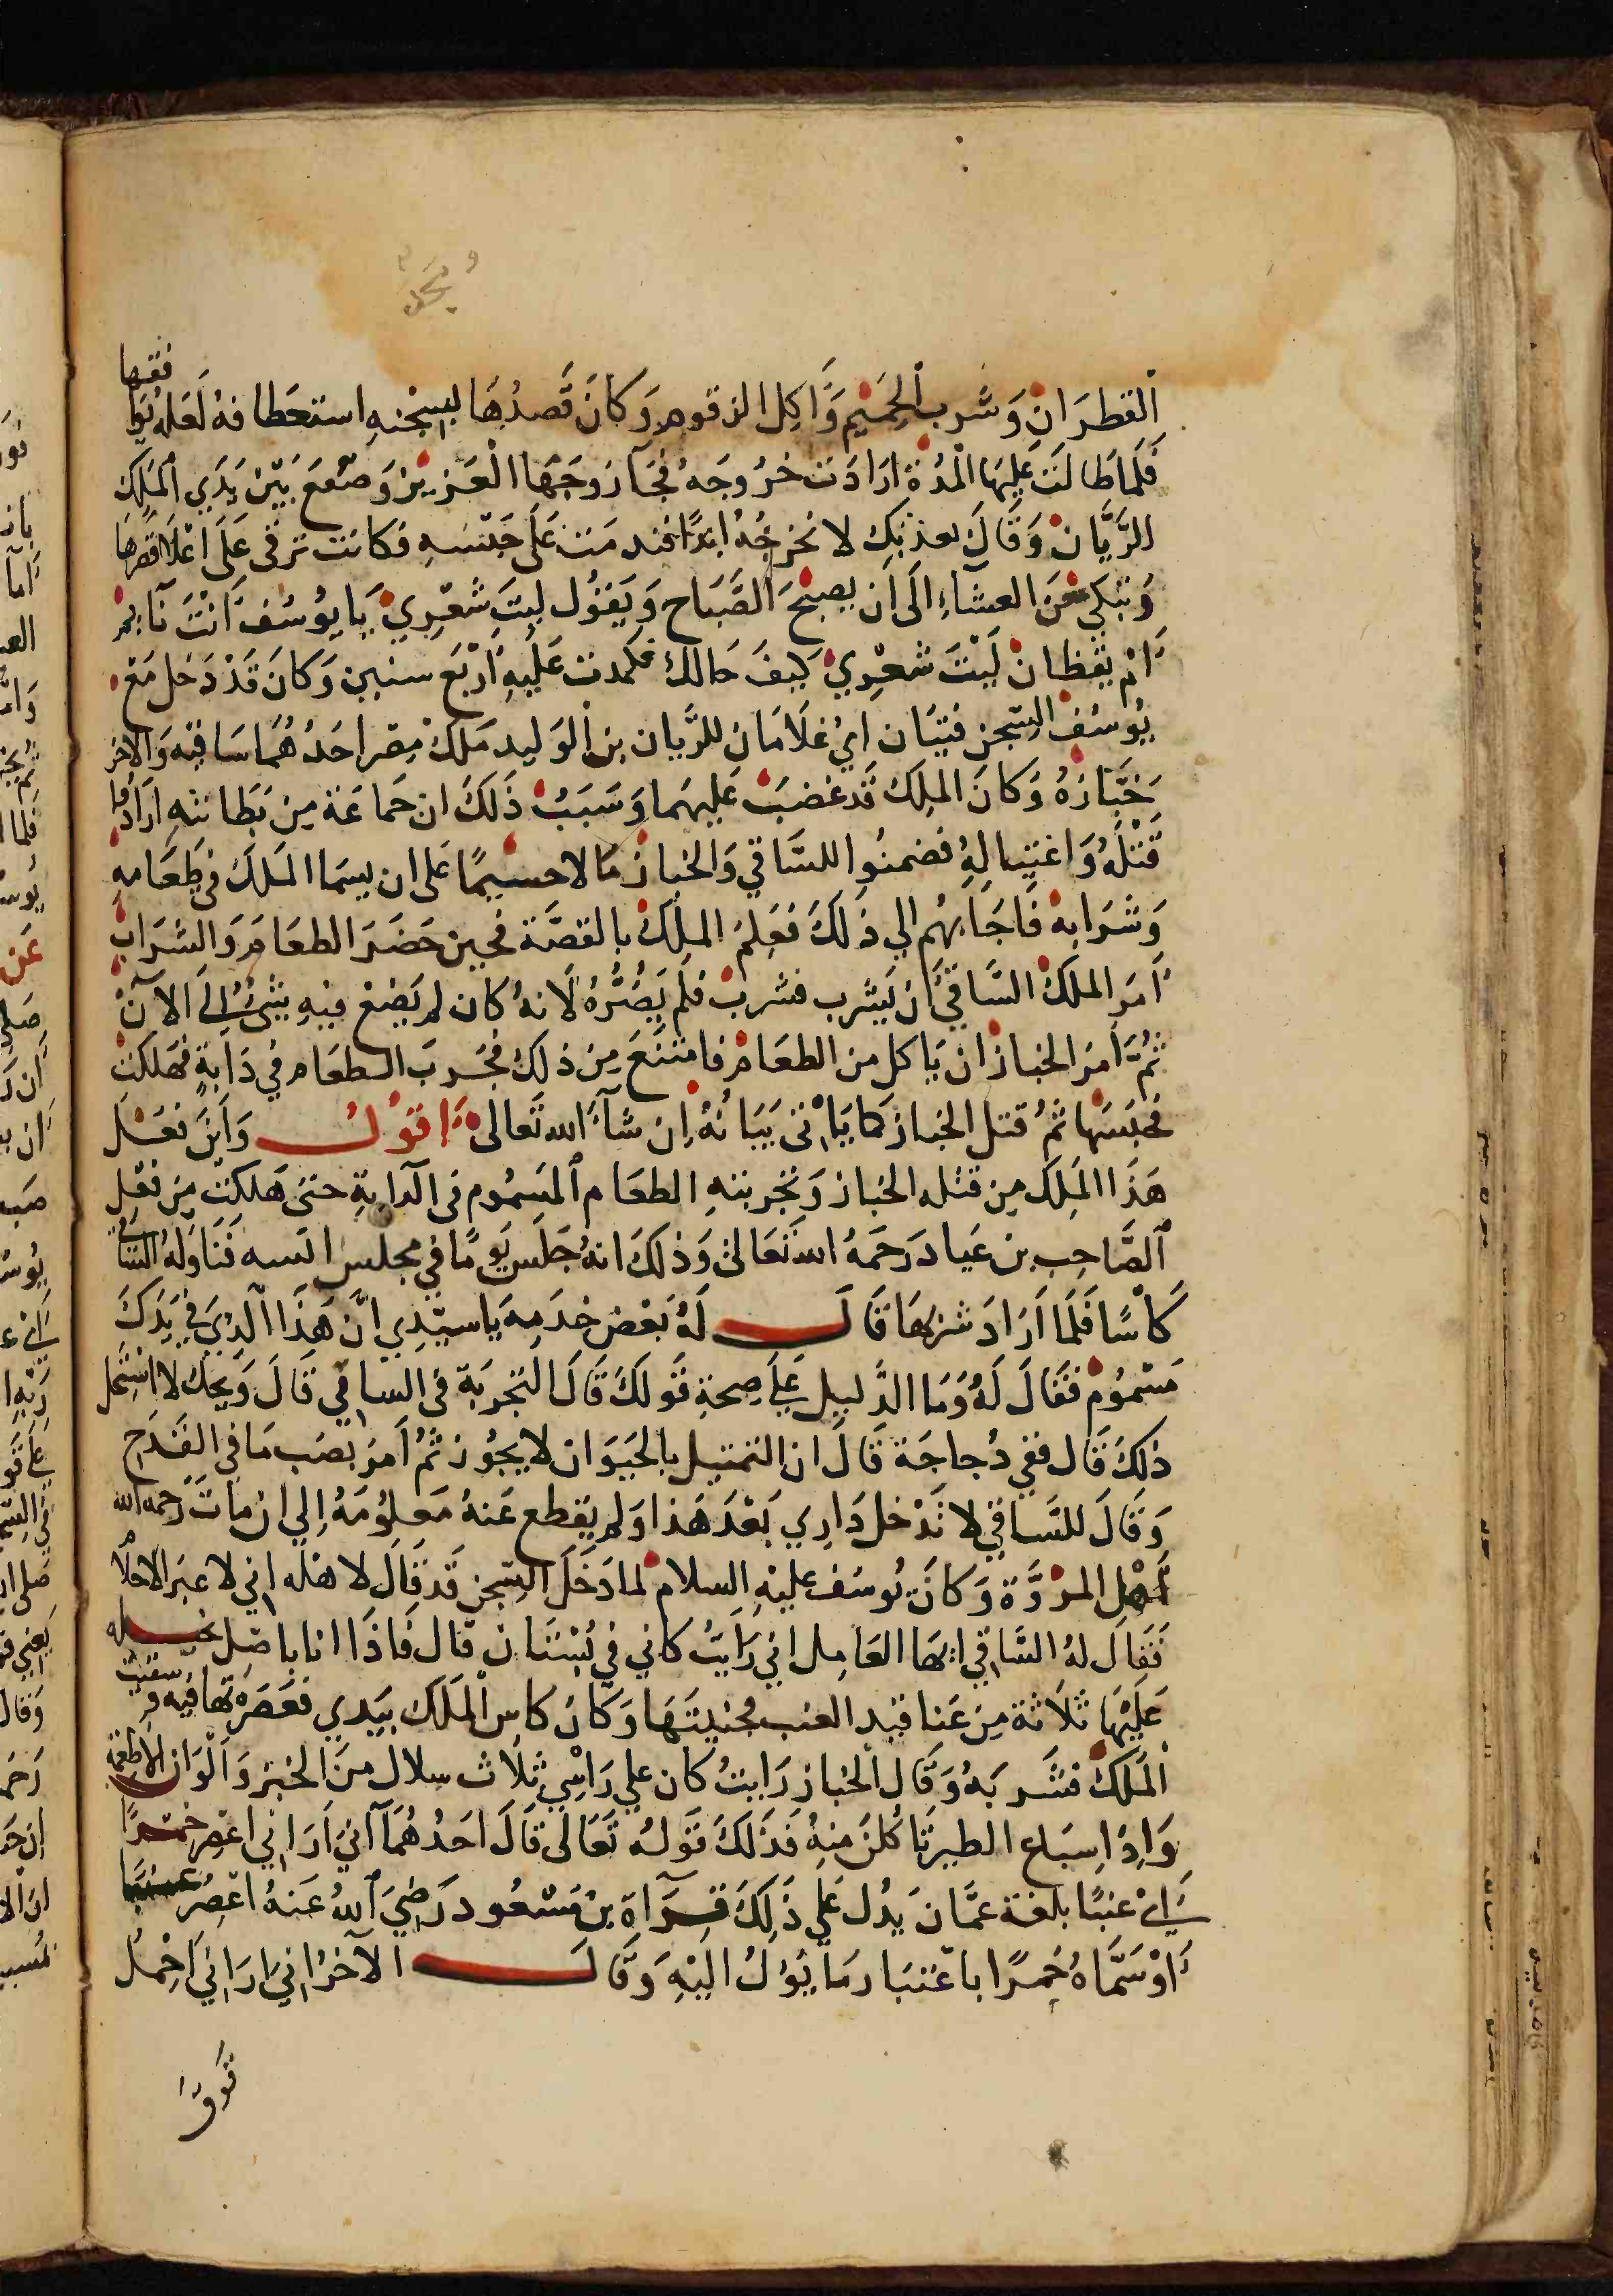 القطران وشرب الحميم واكل الزقوم وكان قصدها بسجنه استعطافه لعله يوا
فقها
فلما طالت عليها المدة ارادت خروجه فجآ زوجها العزيز وصعع بين يدي الملك
الريان وقال بعذبك لا نخرجه ابدًا فندمت على حبسه فكانت ترقى على اعلا قصرها
وتبكي من العشاء الى ان يصبح الصباح ويقول ليت شعري يا يوسف انت نايم
ام يقظان ليت شعري كيف حالك فكمدت عليه اربع سنين وكان قد دخل مع
يوسف السجن فتيان اي غلامان للريان بن الوليد ملك مصر احدهما ساقيه والاخر
خبازه وكان الملك قد غضب عليهما وسبب ذلك ان جماعة من بطانته ارادوا
قتله واغتياله فضمنوا للساقي والخباز مالا جسيمًا على ان يسما الملك في طعامه
وشرابه فاجابهم الي ذلك فعلم الملك بالقصة فحين حضر الطعام والشراب
امر الملك الساقي ان يشرب فشرب فلم يضره لانه كان لم يضع فيه شئ الى الآن
ثم امر الخباز ان ياكل من الطعام فامتنع من ذلك فجرب الطعام في دابة فهلكت
فحبسهما ثم قتل الخباز كما ياتى بيانه ان شآ الله تعالى اقول واين فعل
هذا الملك من قتله الخباز وتجربته الطعام المسموم في الدابة حتى هلكت من فعل
الصاحب بن عباد رحمه الله تعالى وذلك انه جلس يومًا في مجلس انسه فناوله الساقي
كأسًا فلما اراد شربها قال له بعض خدمه يا سيدي ان هذا الذي في يدك
مسموم فقال له وما الدليل على صحة قولك قال التجربة في الساقي قال ويحك لا استحل
ذلك قال ففي دجاجة قال ان التمثيل بالحيوان لا يجوز ثم امر بصب ما في القدح
وقال للساقي لا تدخل داري بعد هذا ولم يقطع عنه معلومه الي ان مات رحمه الله
اهل المروة وكان يوسف عليه السلام لما دخل السجن قد قال لاهله اني لاعبر الاحلام
فقال له الساقي ايها العامل اني رايت كاني في بستنان قال فاذا انا باصل نخله
عليها ثلاثة من عناقيد العنب فجنيتها وكان كاس الملك بيدي فعصرتها فيه وسقيت
الملك فشربه وقال الخباز رايت كان علي راسي ثلاث سلال من الخبز والوان الاطعمة
واذا سباع الطير تاكلن منه فذلك قوله تعالى قال احدهمآ اني اراني اعصر خمرًا
اي عنبًا بلغة عمان يدل علي ذلك قرآة بن مسعود رضي الله عنه اعصر عنبًا
او سماه خمرًا باعتبار ما يؤل اليه وقال الآخر اني اراني احمل
فوق